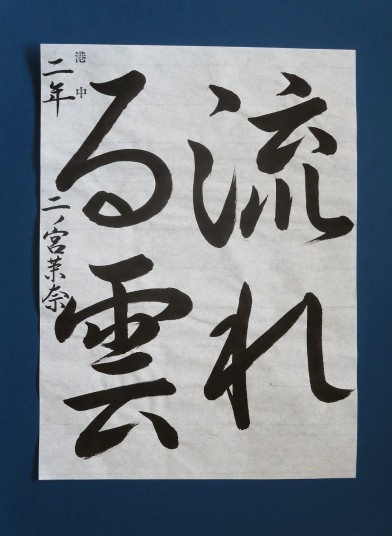 流れ
る雲
港中
二年 二ノ宮茉奈